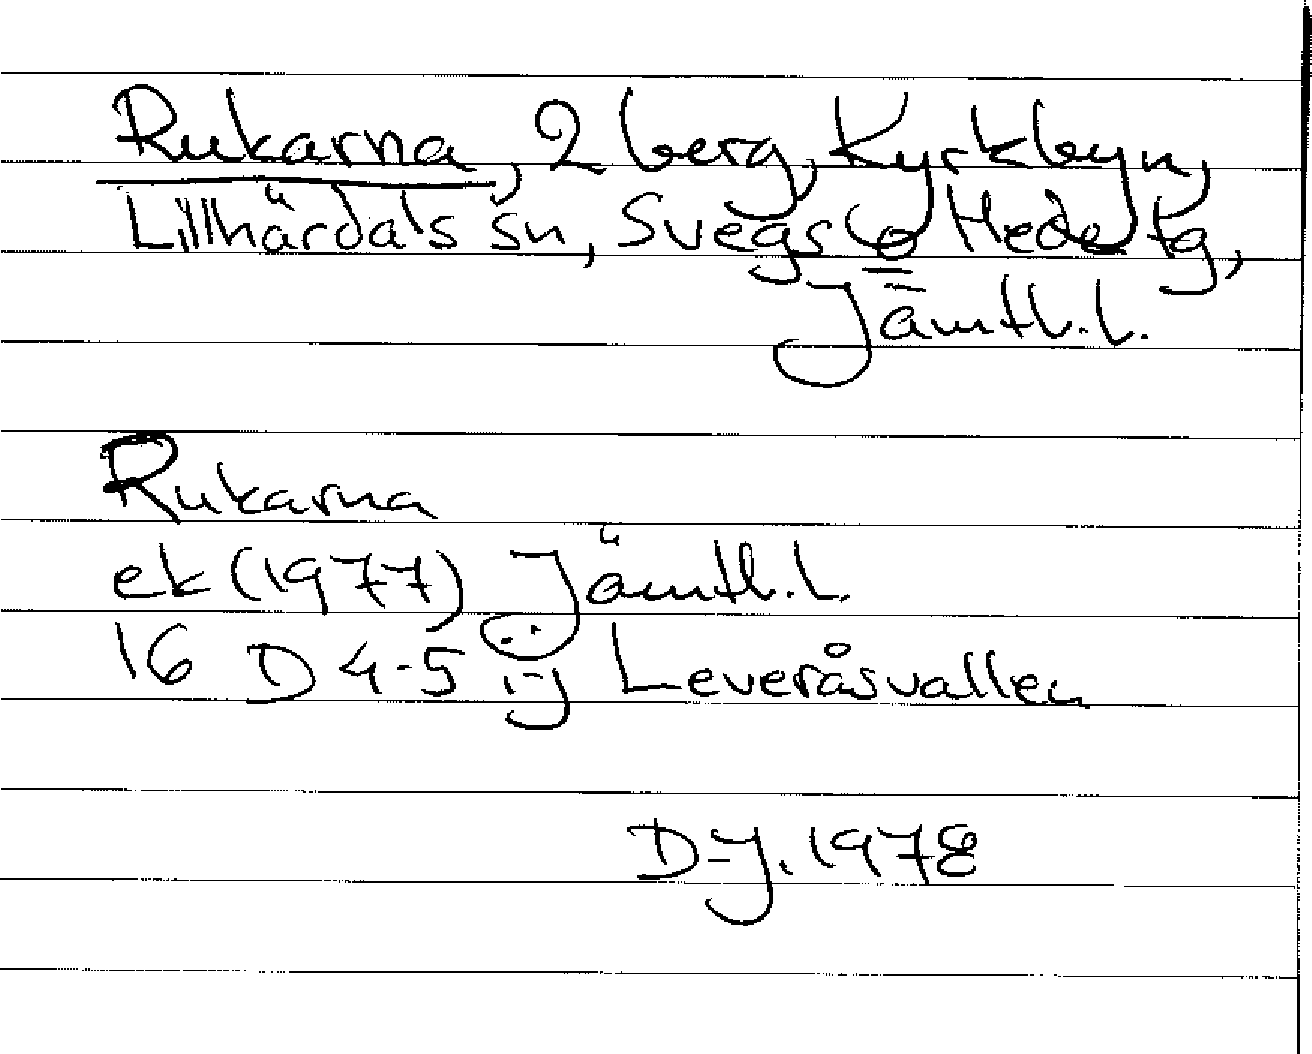 Rukarna, 2 berg, Kyrkbyn,
Lillhärdals sn, Svegs o Hede tg,
Jämtl. l.
Rukarna
ek (1977) Jämtl. L.
16 D 4-5 i-j Leveråsvallen
D-J. 1978